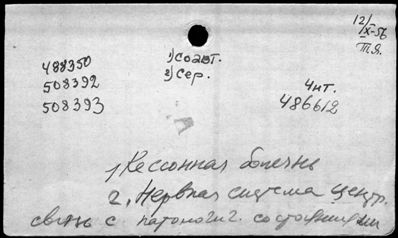 12/IX-56
Т.Я.
1) Соавт.
2) Сер.
488350
508392
508393
Чит.
486612
1, Кессонная болезнь
2, Нервная система центр.
связь с патологич. состояниями